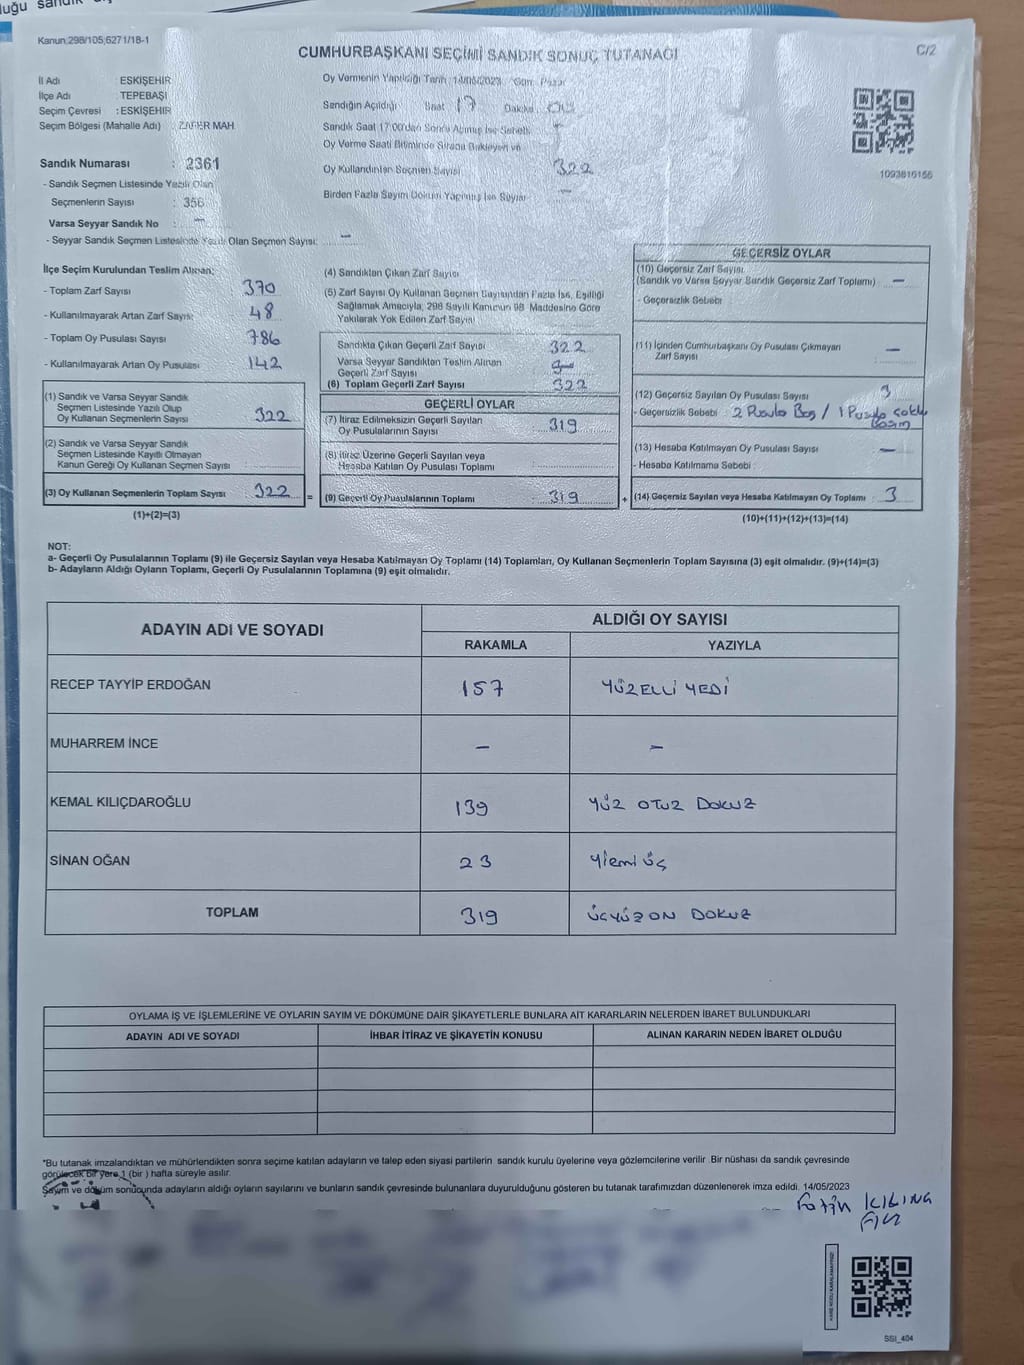 Kanun:298/105,6271/18-1
C/2
CUMHURBAŞKANI SEÇİMİ SANDIK SONUÇ TUTANAĞI
İl Adı : ESKİŞEHİR
İlçe Adı : TEPEBAŞI
Seçim Çevresi : ESKİŞEHİR
Seçim Bölgesi (Mahalle Adı) : ZAFER MAH.
Sandık Numarası : 2361
- Sandık Seçmen Listesinde Yazılı Olan
Seçmenlerin Sayısı : 356
Varsa Seyyar Sandık No : —
- Seyyar Sandık Seçmen Listesinde Yazılı Olan Seçmen Sayısı: —
Oy Vermenin Yapıldığı Tarih : 14/05/2023 Gün: Pazar
Sandığın Açıldığı Saat 17 Dakika 00
Sandık Saat 17:00'dan Sonra Açılmış İse Sebebi
Oy Verme Saati Bitiminde Sırada Bekleyen ve
Oy Kullandırılan Seçmen Sayısı 322
Birden Fazla Sayım Döküm Yapılmış İse Sayısı —
1093816156
İlçe Seçim Kurulundan Teslim Alınan:
- Toplam Zarf Sayısı 370
- Kullanılmayarak Artan Zarf Sayısı 48
- Toplam Oy Pusulası Sayısı 786
- Kullanılmayarak Artan Oy Pusulası 142
(1) Sandık ve Varsa Seyyar Sandık
Seçmen Listesinde Yazılı Olup
Oy Kullanan Seçmenlerin Sayısı 322
(2) Sandık ve Varsa Seyyar Sandık
Seçmen Listesinde Kayıtlı Olmayan
Kanun Gereği Oy Kullanan Seçmen Sayısı
(3) Oy Kullanan Seçmenlerin Toplam Sayısı 322 =
(1)+(2)=(3)
(4) Sandıktan Çıkan Zarf Sayısı
(5) Zarf Sayısı Oy Kullanan Seçmen Sayısından Fazla İse, Eşitliği
Sağlamak Amacıyla; 298 Sayılı Kanunun 98. Maddesine Göre
Yakılarak Yok Edilen Zarf Sayısı
Sandıkta Çıkan Geçerli Zarf Sayısı 322
Varsa Seyyar Sandıktan Teslim Alınan
Geçerli Zarf Sayısı
(6) Toplam Geçerli Zarf Sayısı 322
GEÇERLİ OYLAR
(7) İtiraz Edilmeksizin Geçerli Sayılan
Oy Pusulalarının Sayısı : 319
(8) İtiraz Üzerine Geçerli Sayılan veya
Hesaba Katılan Oy Pusulası Toplamı :
(9) Geçerli Oy Pusulalarının Toplamı : 319 +
GEÇERSİZ OYLAR
(10) Geçersiz Zarf Sayısı
(Sandık ve Varsa Seyyar Sandık Geçersiz Zarf Toplamı) —
- Geçersizlik Sebebi
(11) İçinden Cumhurbaşkanı Oy Pusulası Çıkmayan
Zarf Sayısı —
(12) Geçersiz Sayılan Oy Pusulası Sayısı 3
- Geçersizlik Sebebi 2 Pusula Boş / 1 Pusula çoklu
Basım
(13) Hesaba Katılmayan Oy Pusulası Sayısı —
- Hesaba Katılmama Sebebi :
(14) Geçersiz Sayılan veya Hesaba Katılmayan Oy Toplamı : 3
(10)+(11)+(12)+(13)=(14)
NOT:
a- Geçerli Oy Pusulalarının Toplamı (9) ile Geçersiz Sayılan veya Hesaba Katılmayan Oy Toplamı (14) Toplamları, Oy Kullanan Seçmenlerin Toplam Sayısına (3) eşit olmalıdır. (9)+(14)=(3)
b- Adayların Aldığı Oyların Toplamı, Geçerli Oy Pusulalarının Toplamına (9) eşit olmalıdır.
ADAYIN ADI VE SOYADI
ALDIĞI OY SAYISI
RAKAMLA YAZIYLA
RECEP TAYYİP ERDOĞAN 157 YÜZELLİ YEDİ
MUHARREM İNCE — —
KEMAL KILIÇDAROĞLU 139 YÜZ OTUZ DOKUZ
SİNAN OĞAN 23 Yirmi üç
TOPLAM 319 ÜÇYÜZON DOKUZ
OYLAMA İŞ VE İŞLEMLERİNE VE OYLARIN SAYIM VE DÖKÜMÜNE DAİR ŞİKAYETLERLE BUNLARA AİT KARARLARIN NELERDEN İBARET BULUNDUKLARI
ADAYIN ADI VE SOYADI İHBAR İTİRAZ VE ŞİKAYETİN KONUSU ALINAN KARARIN NEDEN İBARET OLDUĞU
*Bu tutanak imzalandıktan ve mühürlendikten sonra seçime katılan adayların ve talep eden siyasi partilerin sandık kurulu üyelerine veya gözlemcilerine verilir. Bir nüshası da sandık çevresinde
görülecek bir yere 1 (bir ) hafta süreyle asılır.
Sayım ve döküm sonucunda adayların aldığı oyların sayılarını ve bunların sandık çevresinde bulunanlara duyurulduğunu gösteren bu tutanak tarafımızdan düzenlenerek imza edildi. 14/05/2023
SSI_404